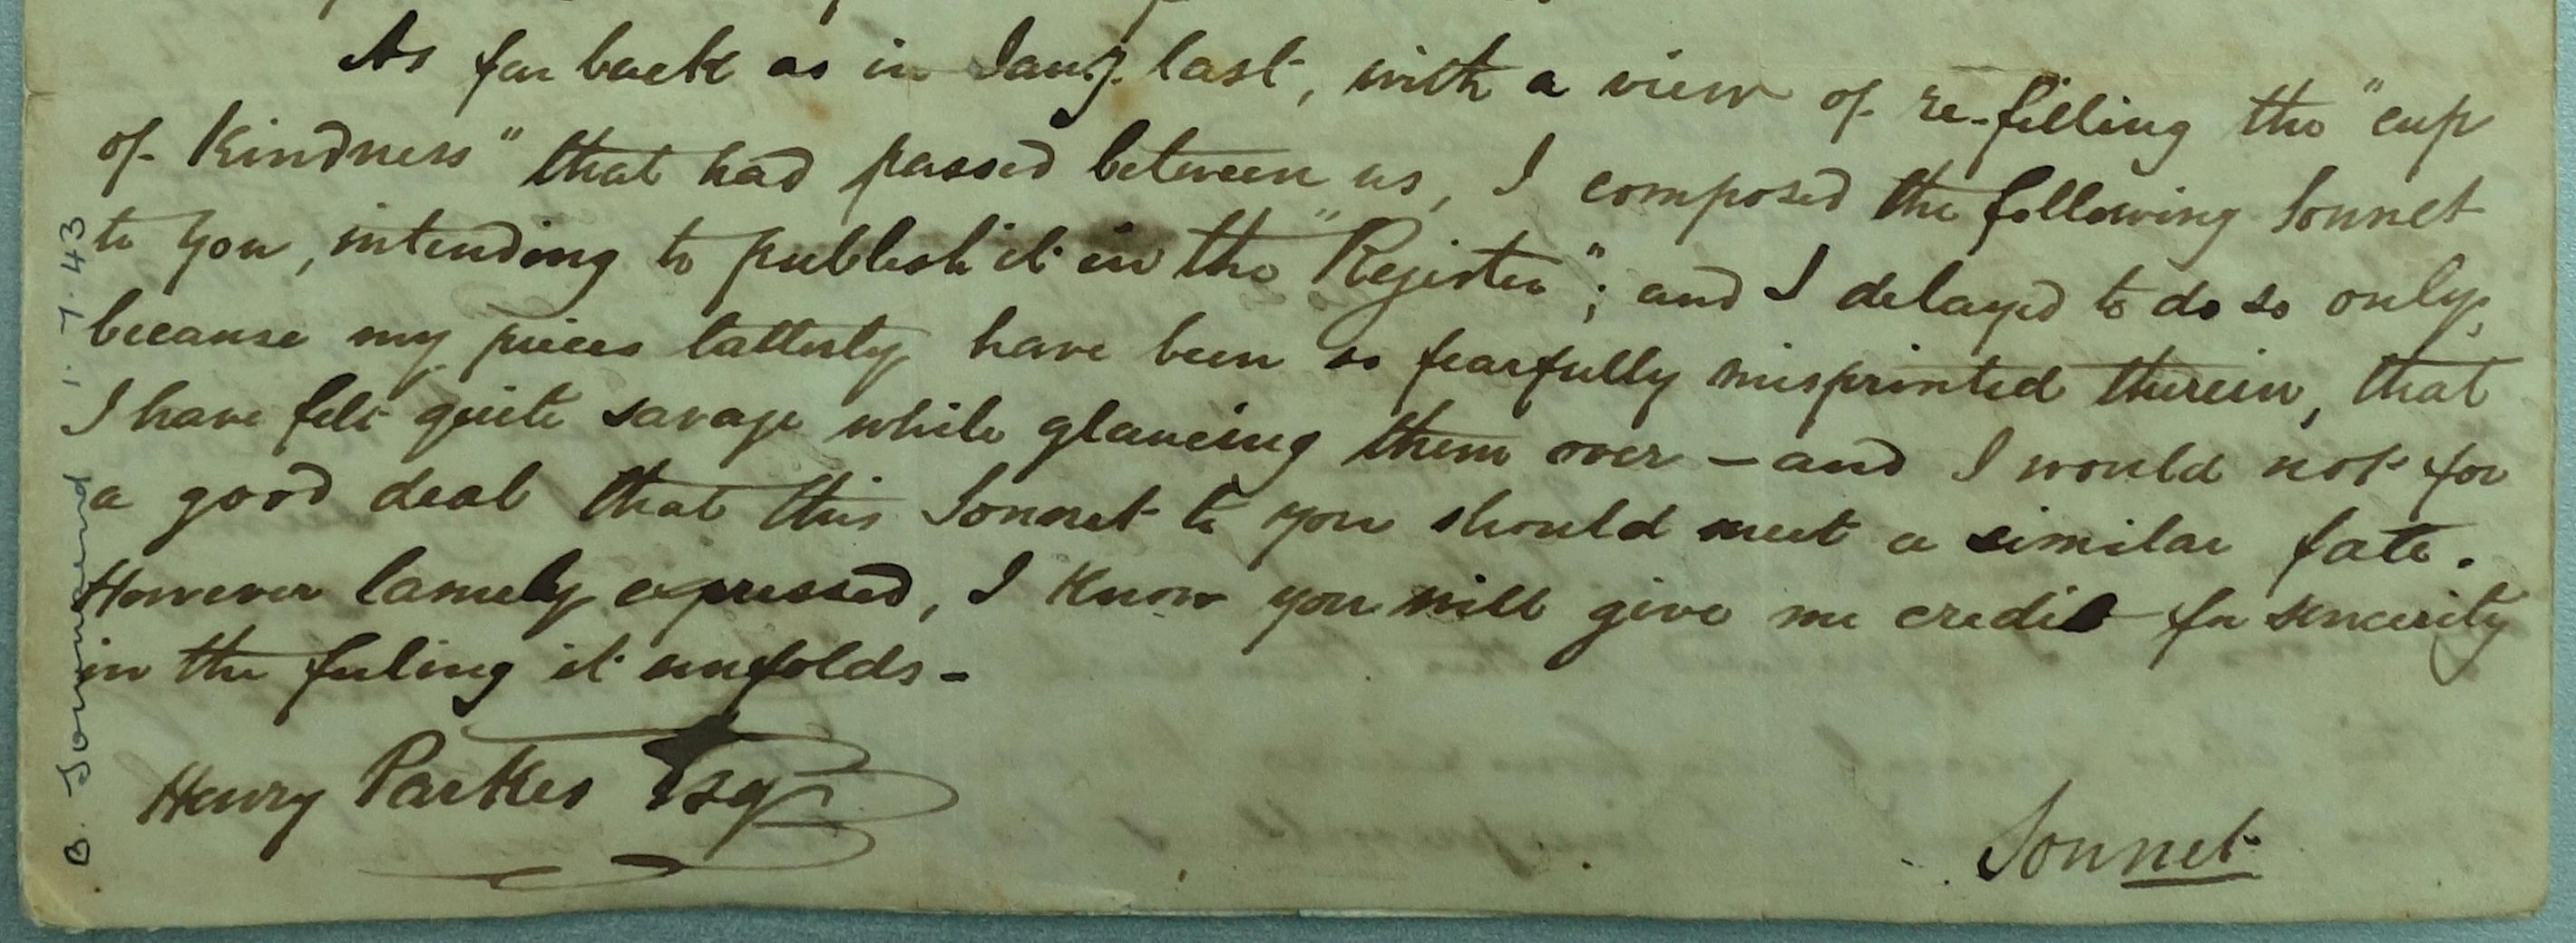 As far back as in Jany. last, with a view of re-filling the "cup
of Kindness" that had passed between us, I composed the following Sonnet
to you, intending to publish it in the "Register"; and I delayed to do so only,
because my pieces latterly have been so fearfully misprinted therein, that
I have felt quite savage while glancing them over – and I would not for
a good deal that this Sonnet to you should meet a similar fate.
However lamely expressed, I know you will give me credit for sincerity
in the feeling it unfolds –
Henry Parkes Esq
Sonnet
1. 7. 43